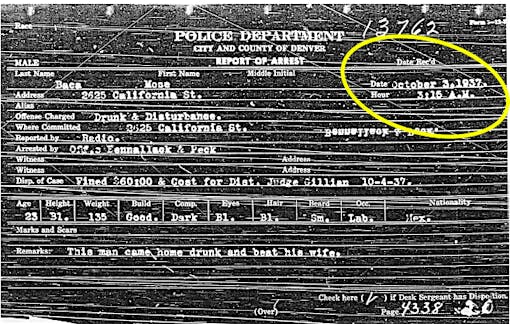 Race 13762 Form 1-13
POLICE DEPARTMENT
CITY AND COUNTY OF DENVER
MALE REPORT OF ARREST Date Rec'd
Last Name First Name Middle Initial
Baca Mose Date October 3, 1937.
Address 2625 California St. Hour 3:15 A.M.
Alias
Offense Charged Drunk & Disturbance.
Where Committed 2625 California St.
Reported by Radio.
Arrested by Pennallack & Peck
Witness Address
Witness Address
Disp. of Case Fined $60:00 & Cost for Dist. Judge Gillian 10-4-37.
Age Height Weight Build Comp. Eyes Hair Beard Occ. Nationality
23 Bl. 135 Good. Dark Bl. Bl. Sm. Lab. Mex.
Marks and Scars
Remarks: This man came home drunk and beat his wife.
Check here (✓) if Desk Sergeant has Disposition.
(Over) Page 4338